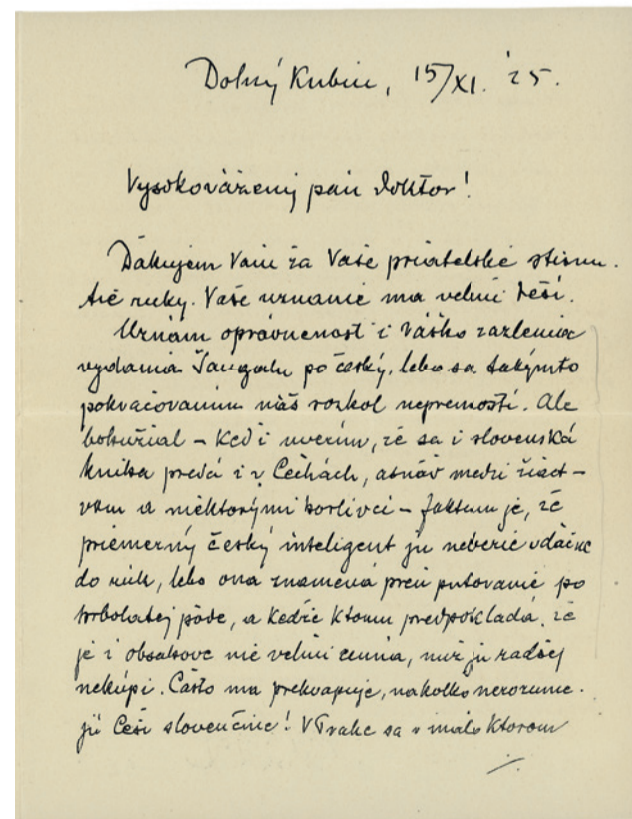 Dolný Kubín, 15/XI. '25.
Vysokovážený pán doktor!
Ďakujem Vám za Vaše priateľské stisnu-
tie ruky. Vaše uznanie ma veľmi teší.
Uznám oprávnenosť i Vášho zazlenia
vydania Šangalu po česky, lebo sa takýmto
pokračovaním náš rozkol nepremostí. Ale
bohužiaľ – keď i uverím, že sa i slovenská
kniha predá i v Čechách, asnáď medzi žiact-
vom a niektorými horlivci – faktum je, že
priemerný český inteligent ju neberie vďačne
do rúk, lebo ona znamená preň putovanie po
hrboľatej pôde, a keďže k tomu predpokladá, že
je i obsahove nie veľmi cenná, nuž ju radšej
nekúpi. Často ma prekvapuje, nakoľko nerozume-
jú Česi slovenčine! V Prahe sa v málo ktorom